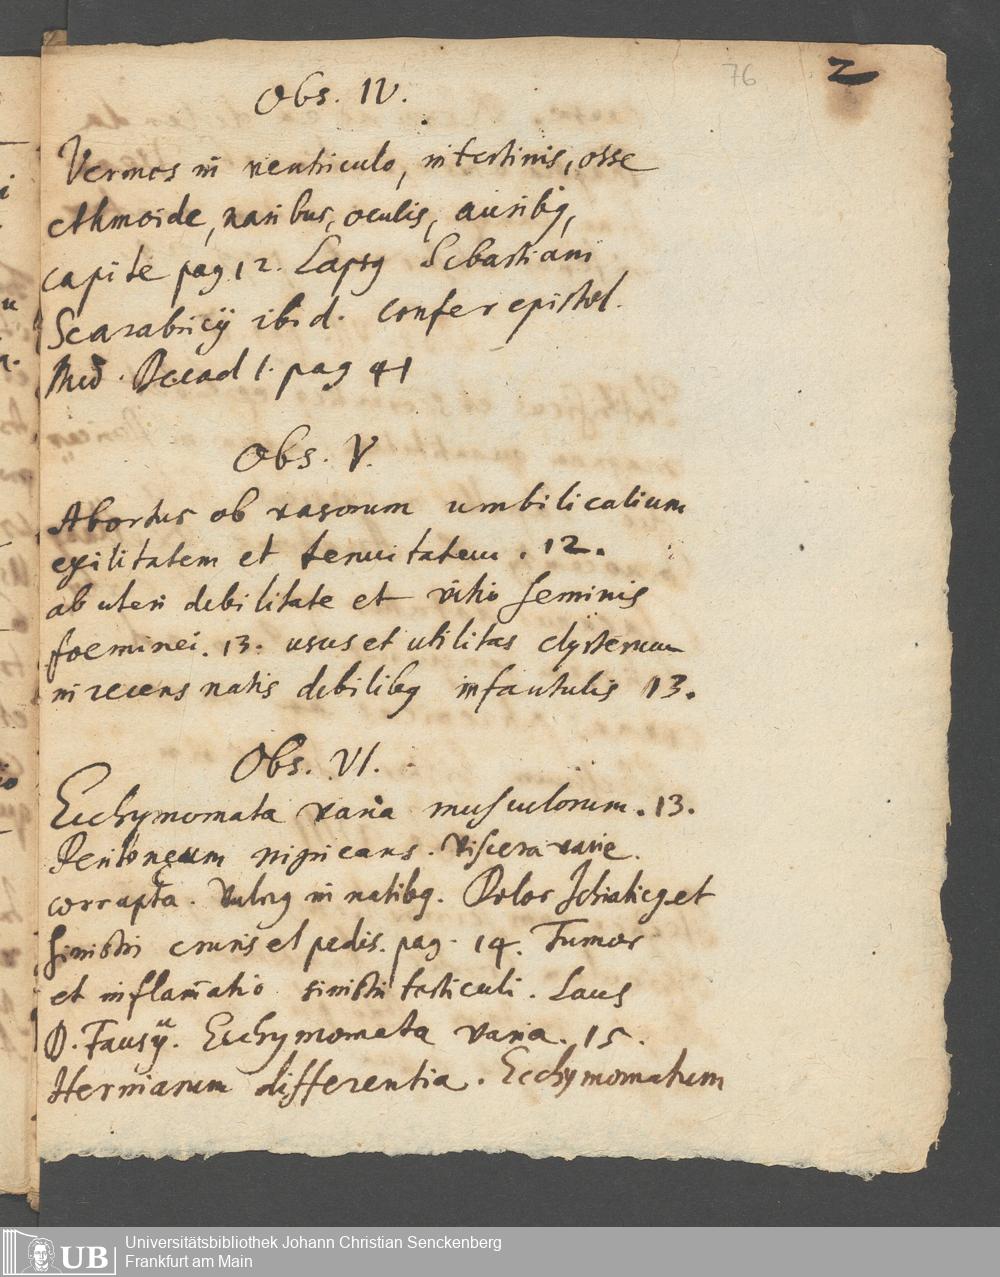 76 2
Obs. IV.
Vermes in ventriculo, intestinis, osse
ethmoide, naribus, oculis, aurib9,
capite pag. 12. Laps9 Sebastiani
Scarabicij ibid. confer epistol.
Med. Decad 1. pag 41
Obs. V.
Abortus ob vasorum umbilicalium
exilitatem et tenuitatem. 12.
ab uteri debilitate et vitio seminis
foeminei. 13. usus et utilitas clysterum
in recens natis debilib9 infantulis 13.
Obs. VI.
Ecchymomata varia musculorum. 13.
Peritoneum nigricans. Viscera varie
corrupta. Vuln9 in natib9. Dolor Ischiatic9 et
sinistri cruris et pedis. pag. 14. Tumor
et inflam̄atio sinistri testiculi. Laus
D. Fausij. Ecchymomata varia. 15.
Herniarum differentia. Ecchymomatum
UB Universitätsbibliothek Johann Christian Senckenberg
Frankfurt am Main